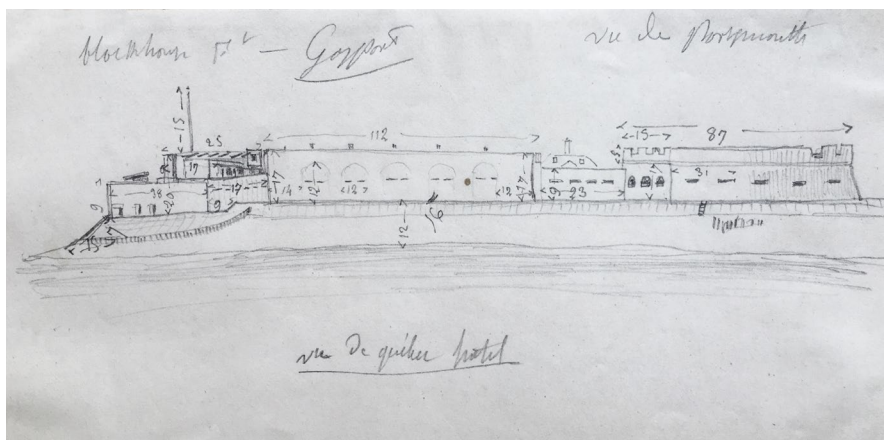 blockhouse Ft — Gosport
vue de Portsmouth
15
25
112
15
87
17
17
17
14
12
12
12
17
9
23
17
31
38
20
9
9
12
6
15
vue de quebec hotel